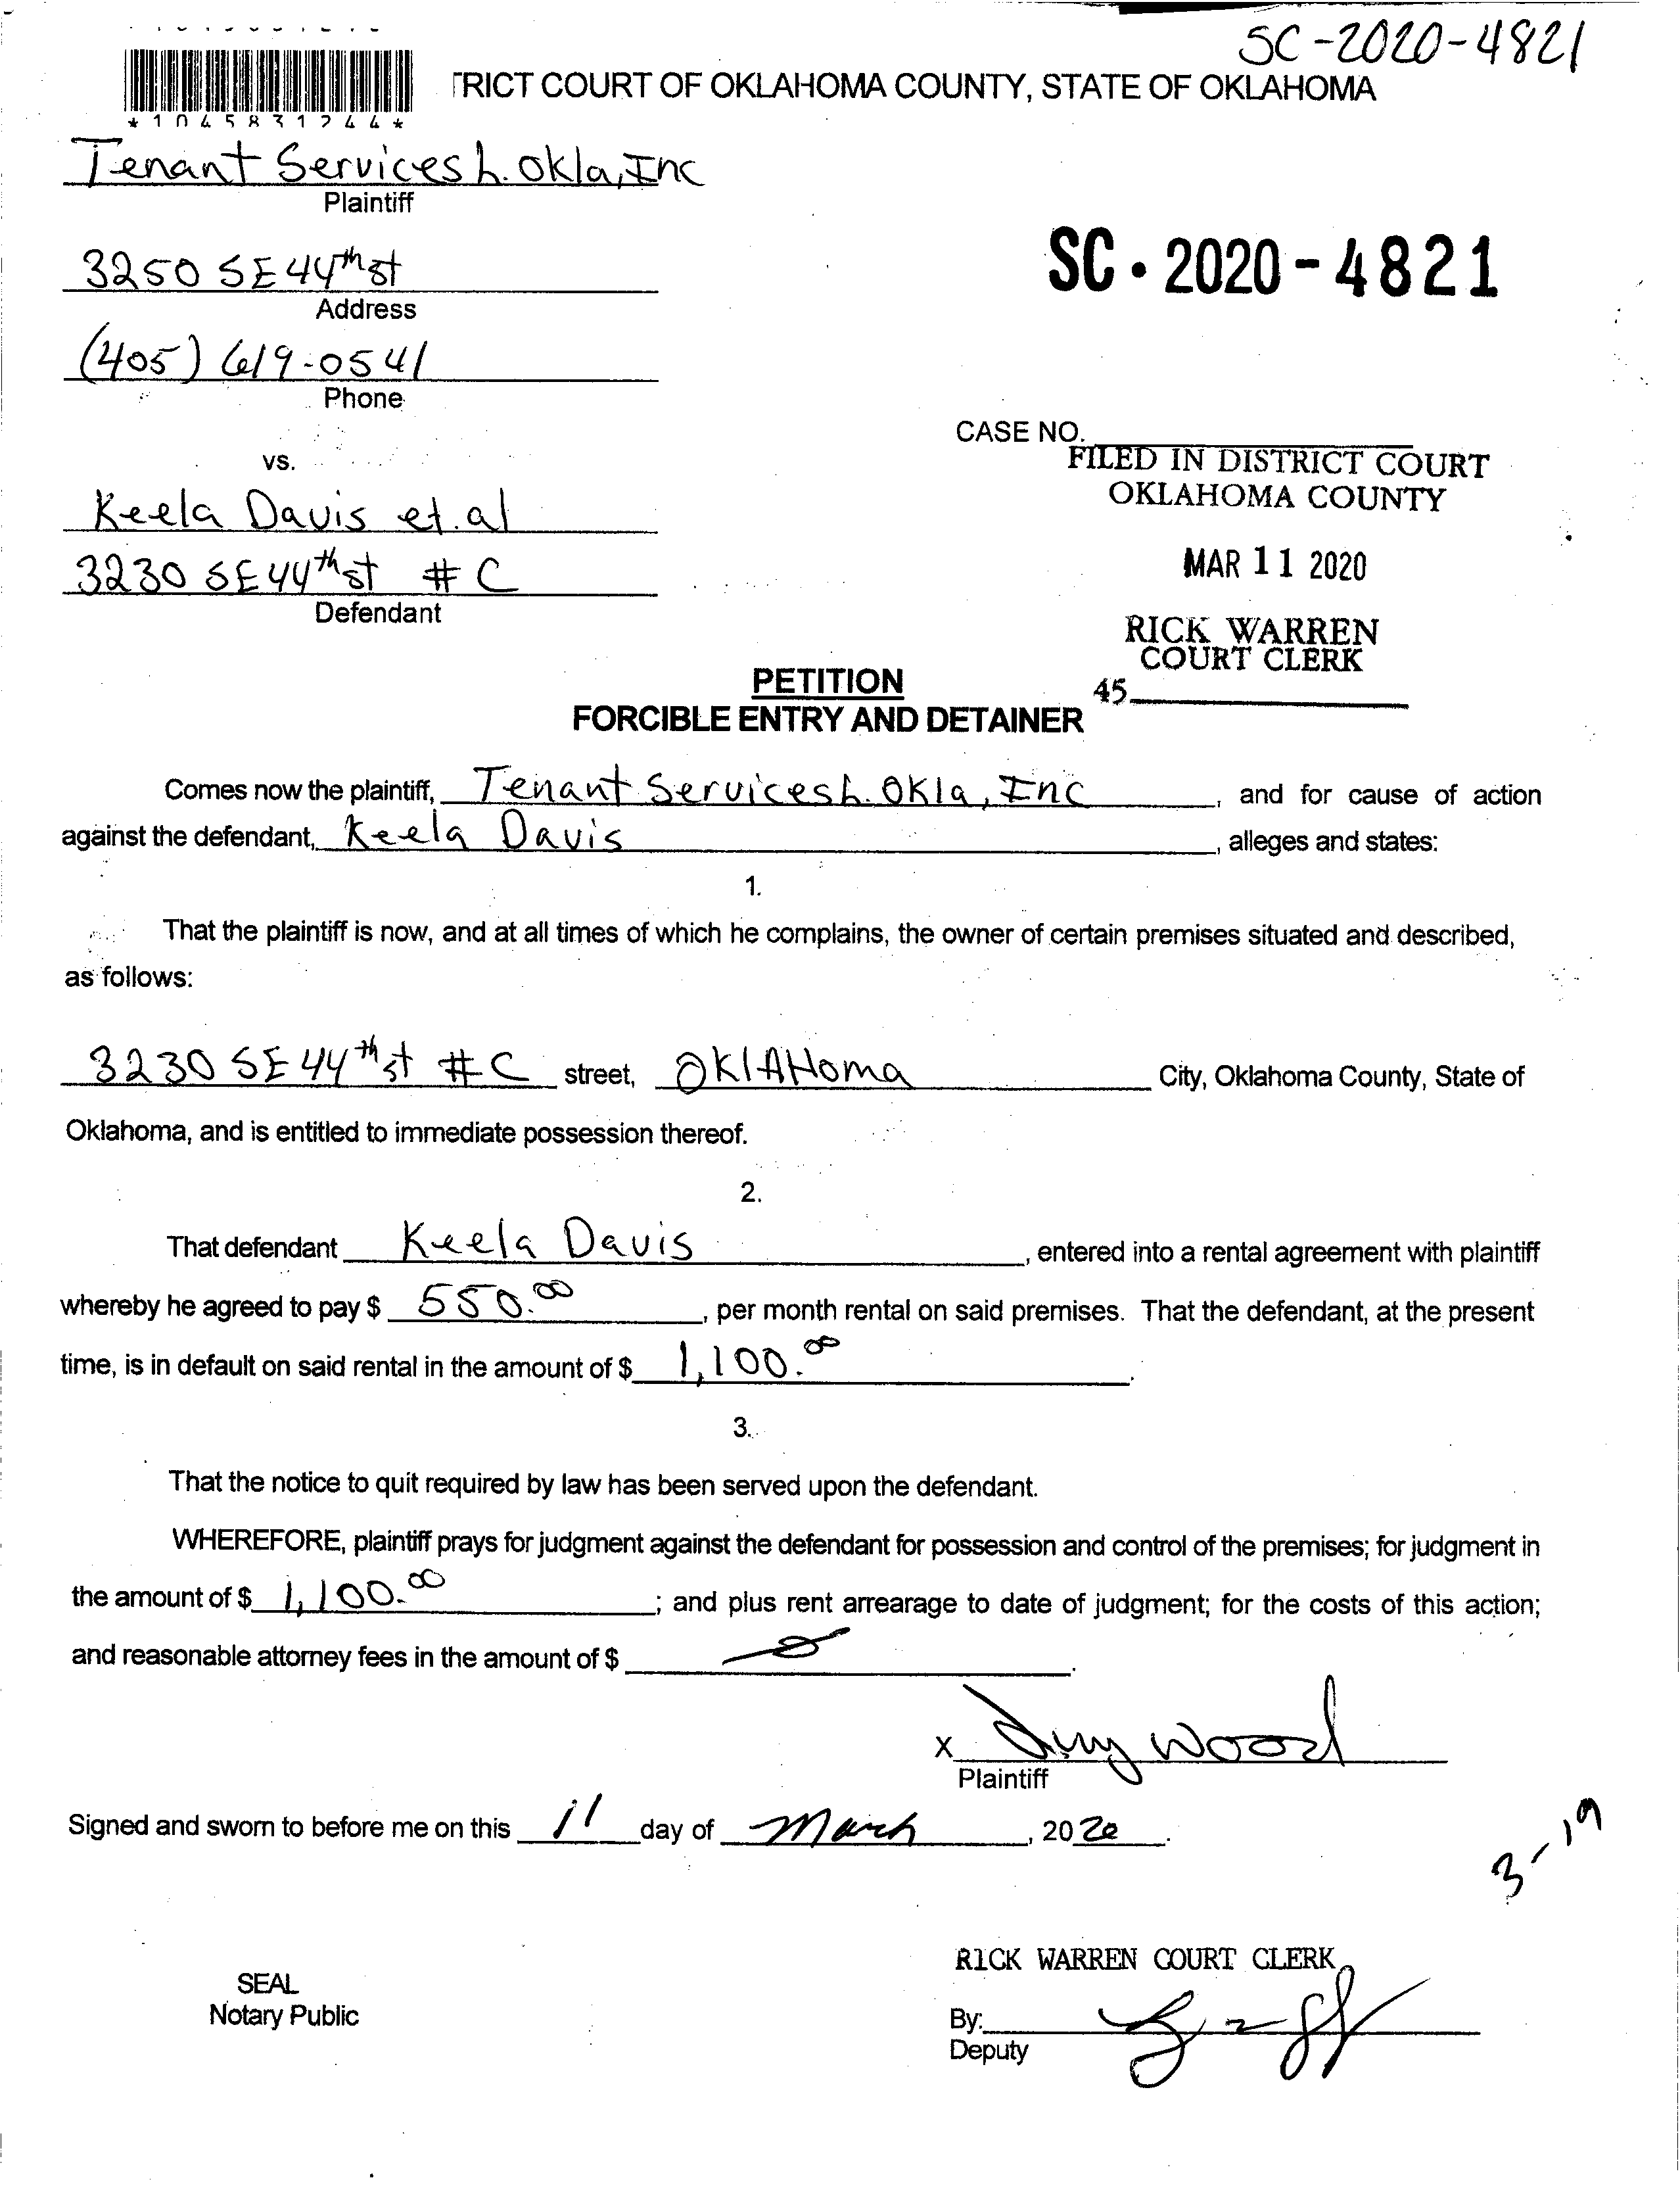 SC-2020-4821
TRICT COURT OF OKLAHOMA COUNTY, STATE OF OKLAHOMA
*1045831244*
Tenant Services h. Okla, Inc
Plaintiff
3250 SE 44th st
Address
SC · 2020 - 4821
(405) 619-0541
Phone
CASE NO.
vs.
FILED IN DISTRICT COURT
OKLAHOMA COUNTY
Keela Davis et. al
MAR 11 2020
3230 SE 44th st # C
Defendant
RICK WARREN
COURT CLERK
45
PETITION
FORCIBLE ENTRY AND DETAINER
Comes now the plaintiff, Tenant Services h. Okla, Inc, and for cause of action
against the defendant, Keela Davis, alleges and states:
1.
That the plaintiff is now, and at all times of which he complains, the owner of certain premises situated and described,
as follows:
3230 SE 44th st # C street, OKlAHoma City, Oklahoma County, State of
Oklahoma, and is entitled to immediate possession thereof.
2.
That defendant Keela Davis, entered into a rental agreement with plaintiff
whereby he agreed to pay $ 550.00, per month rental on said premises. That the defendant, at the present
time, is in default on said rental in the amount of $ 1,100.00.
3.
That the notice to quit required by law has been served upon the defendant.
WHEREFORE, plaintiff prays for judgment against the defendant for possession and control of the premises; for judgment in
the amount of $ 1,100.00; and plus rent arrearage to date of judgment; for the costs of this action;
and reasonable attorney fees in the amount of $ .
X Wood
Plaintiff
Signed and sworn to before me on this 11 day of March, 2020.
3-19
RICK WARREN COURT CLERK
SEAL
Notary Public
By:
Deputy